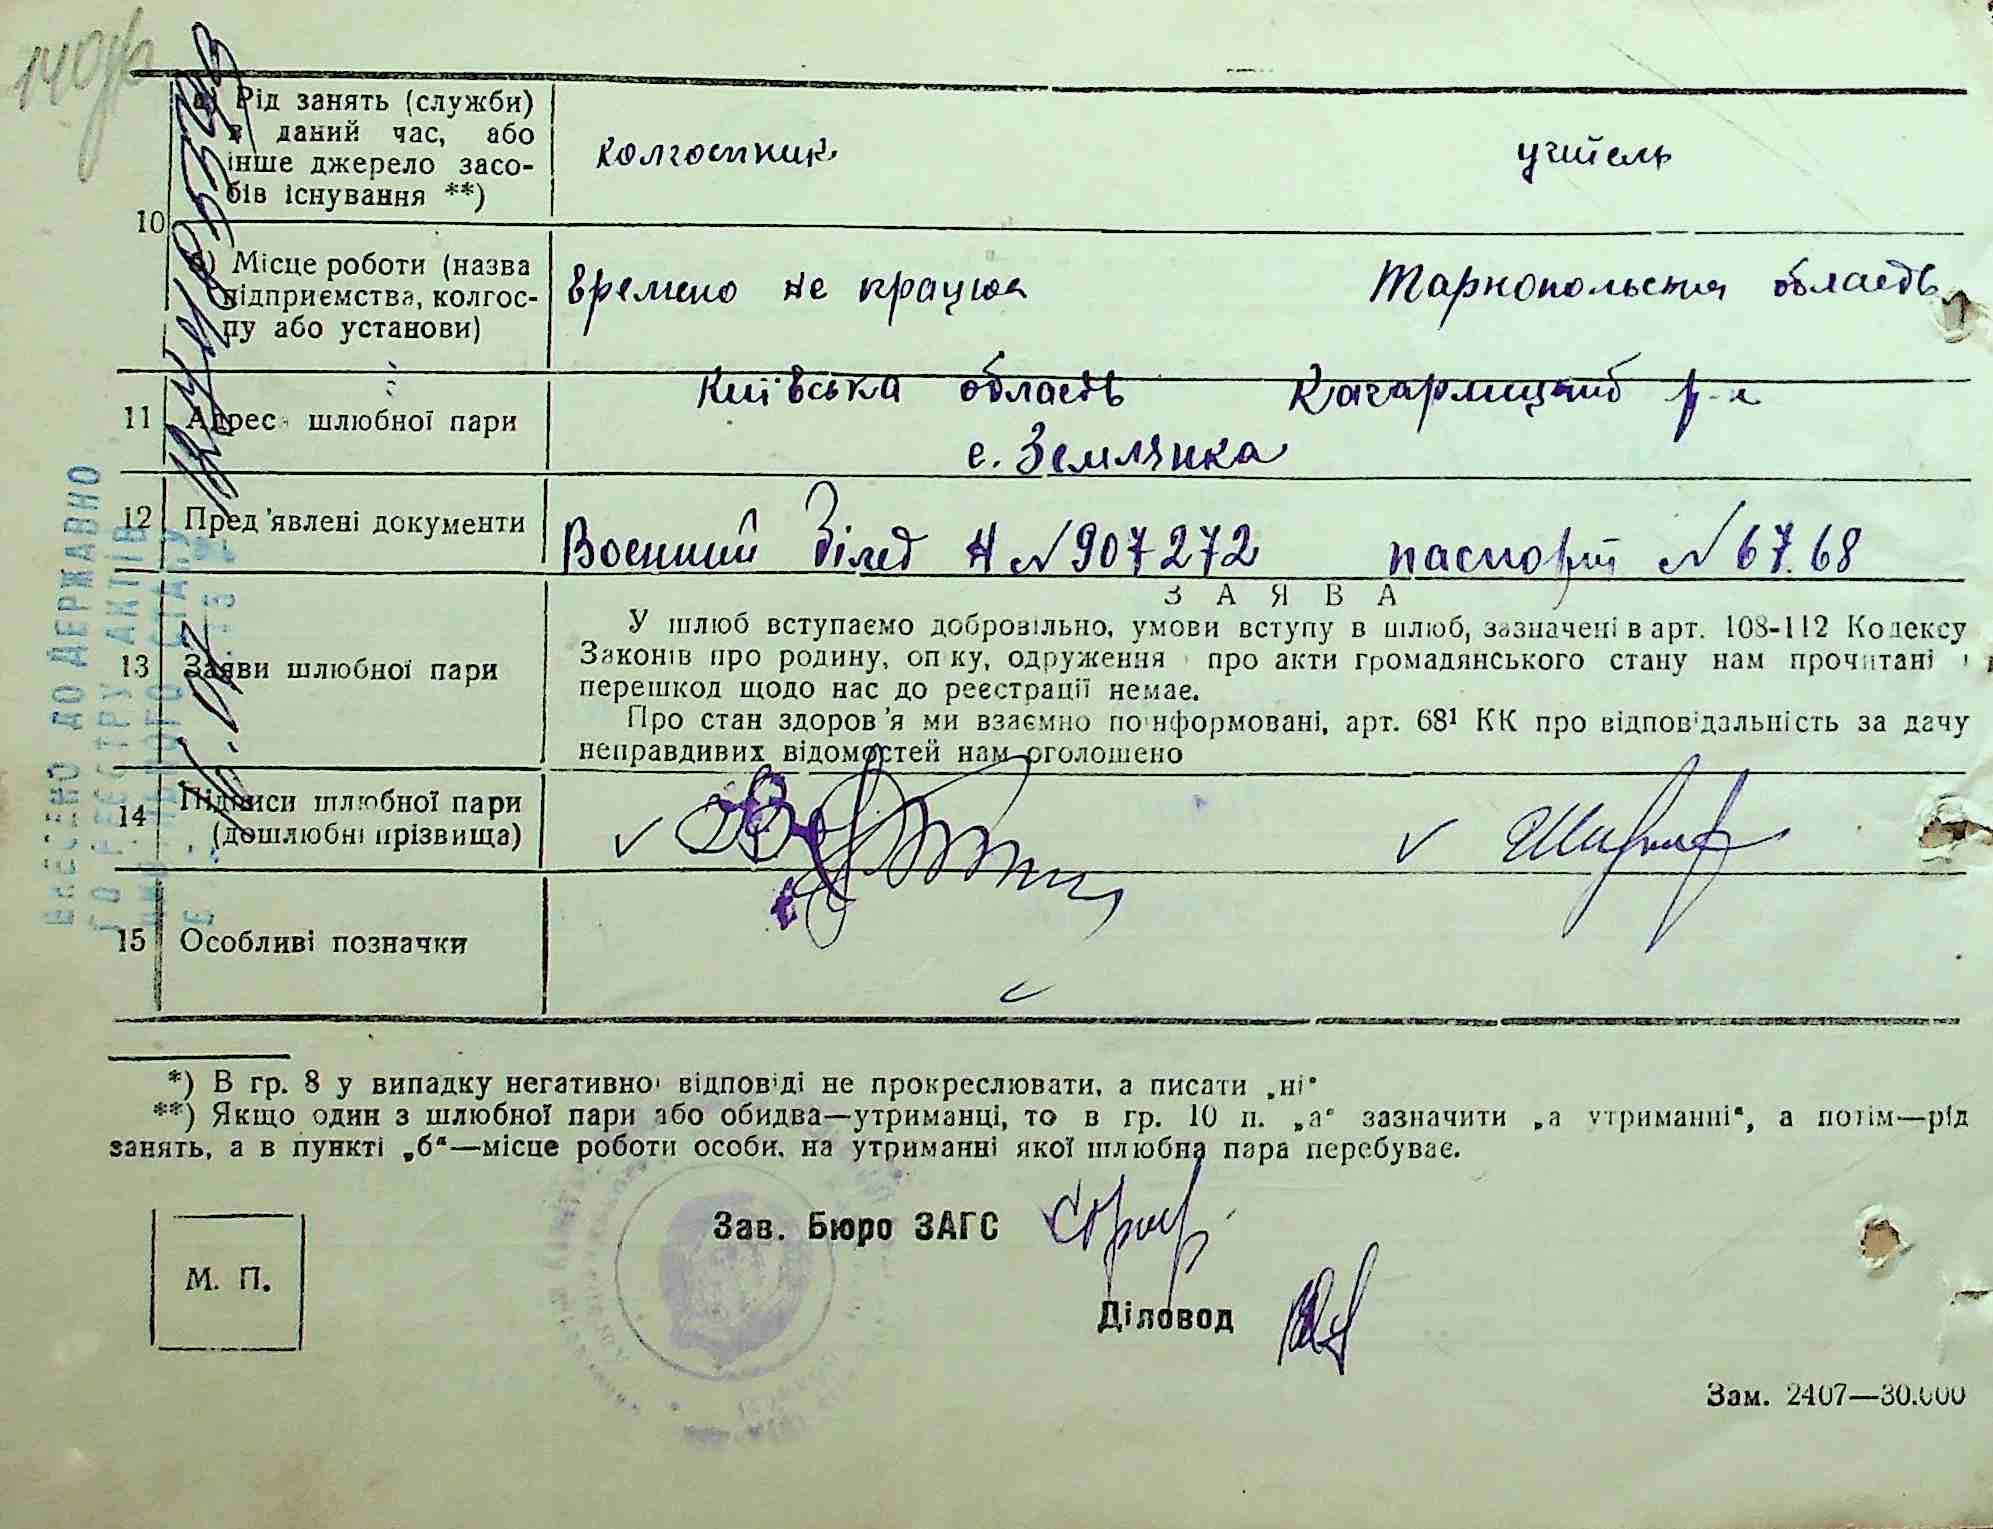 140
10
а) Рід занять (служби)
в даний час, або
інше джерело засо-
бів існування **)
колгоспник
учитель
б) Місце роботи (назва
підприємства, колгос-
пу або установи)
времено не працюе
Тарнопольская область
11
Адрес шлюбної пари
Київська область Кагарлицький р-н
с. Землянка
12
Пред'явлені документи
Воєнний білет Н № 907272
паспорт № 67.68
13
Заяви шлюбної пари
ЗАЯВА
У шлюб вступаємо добровільно, умови вступу в шлюб, зазначені в арт. 108-112 Кодексу
Законів про родину, опіку, одруження і про акти громадянського стану нам прочитані і
перешкод щодо нас до реєстрації немає.
Про стан здоров'я ми взаємно поінформовані, арт. 68¹ КК про відповідальність за дачу
неправдивих відомостей нам оголошено
14
Підписи шлюбної пари
(дошлюбні прізвища)
15
Особливі позначки
*) В гр. 8 у випадку негативної відповіді не прокреслювати, а писати „ні"
**) Якщо один з шлюбної пари або обидва—утриманці, то в гр. 10 п. „а" зазначити „а утриманні", а потім—рід
занять, а в пункті „б"—місце роботи особи, на утриманні якої шлюбна пара перебуває.
Зав. Бюро ЗАГС
Діловод
М. П.
Зам. 2407—30.000
ВНЕСЕНО ДО ДЕРЖАВНО
ГО РЕЄСТРУ АКТІВ